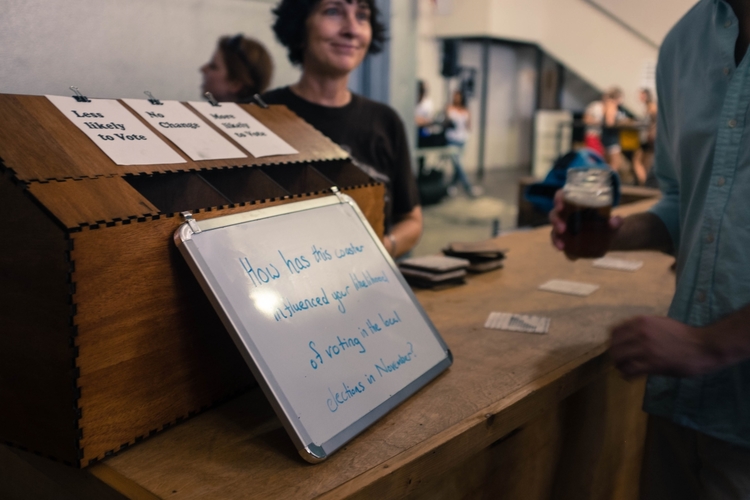 Less
likely
to Vote
No
Change
More
likely
to Vote
How has this coaster
influenced your likelihood
of voting in the local
elections in November?